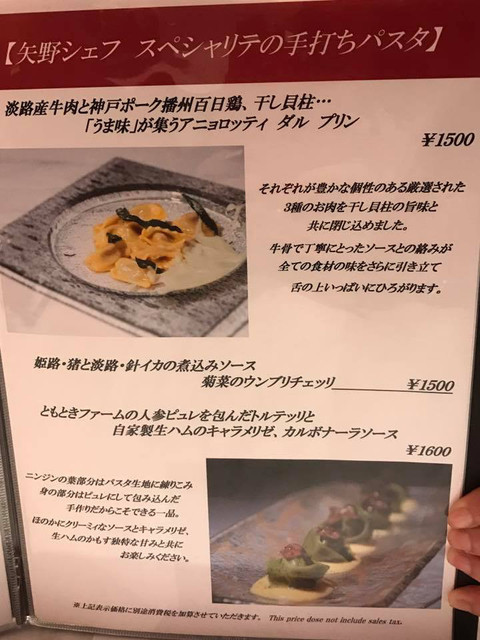 【矢野シェフ スペシャリテの手打ちパスタ】
淡路産牛肉と神戸ポーク播州百日鶏、干し貝柱…
「うま味」が集うアニョロッティ ダル プリン
￥1500
それぞれが豊かな個性のある厳選された
3種のお肉を干し貝柱の旨味と
共に閉じ込めました。
牛骨で丁寧にとったソースとの絡みが
全ての食材の味をさらに引き立て
舌の上いっぱいにひろがります。
姫路・猪と淡路・針イカの煮込みソース
菊菜のウンブリチェッリ ￥1500
ともときファームの人参ピュレを包んだトルテッリと
自家製生ハムのキャラメリゼ、カルボナーラソース
￥1600
ニンジンの葉部分はパスタ生地に練りこみ
身の部分はピュレにして包み込んだ
手作りだからこそできる一品。
ほのかにクリーミィなソースとキャラメリゼ、
生ハムのかもす独特な甘みと共に
お楽しみください。
※上記表示価格に別途消費税を加算させていただきます。 This price dose not include sales tax.